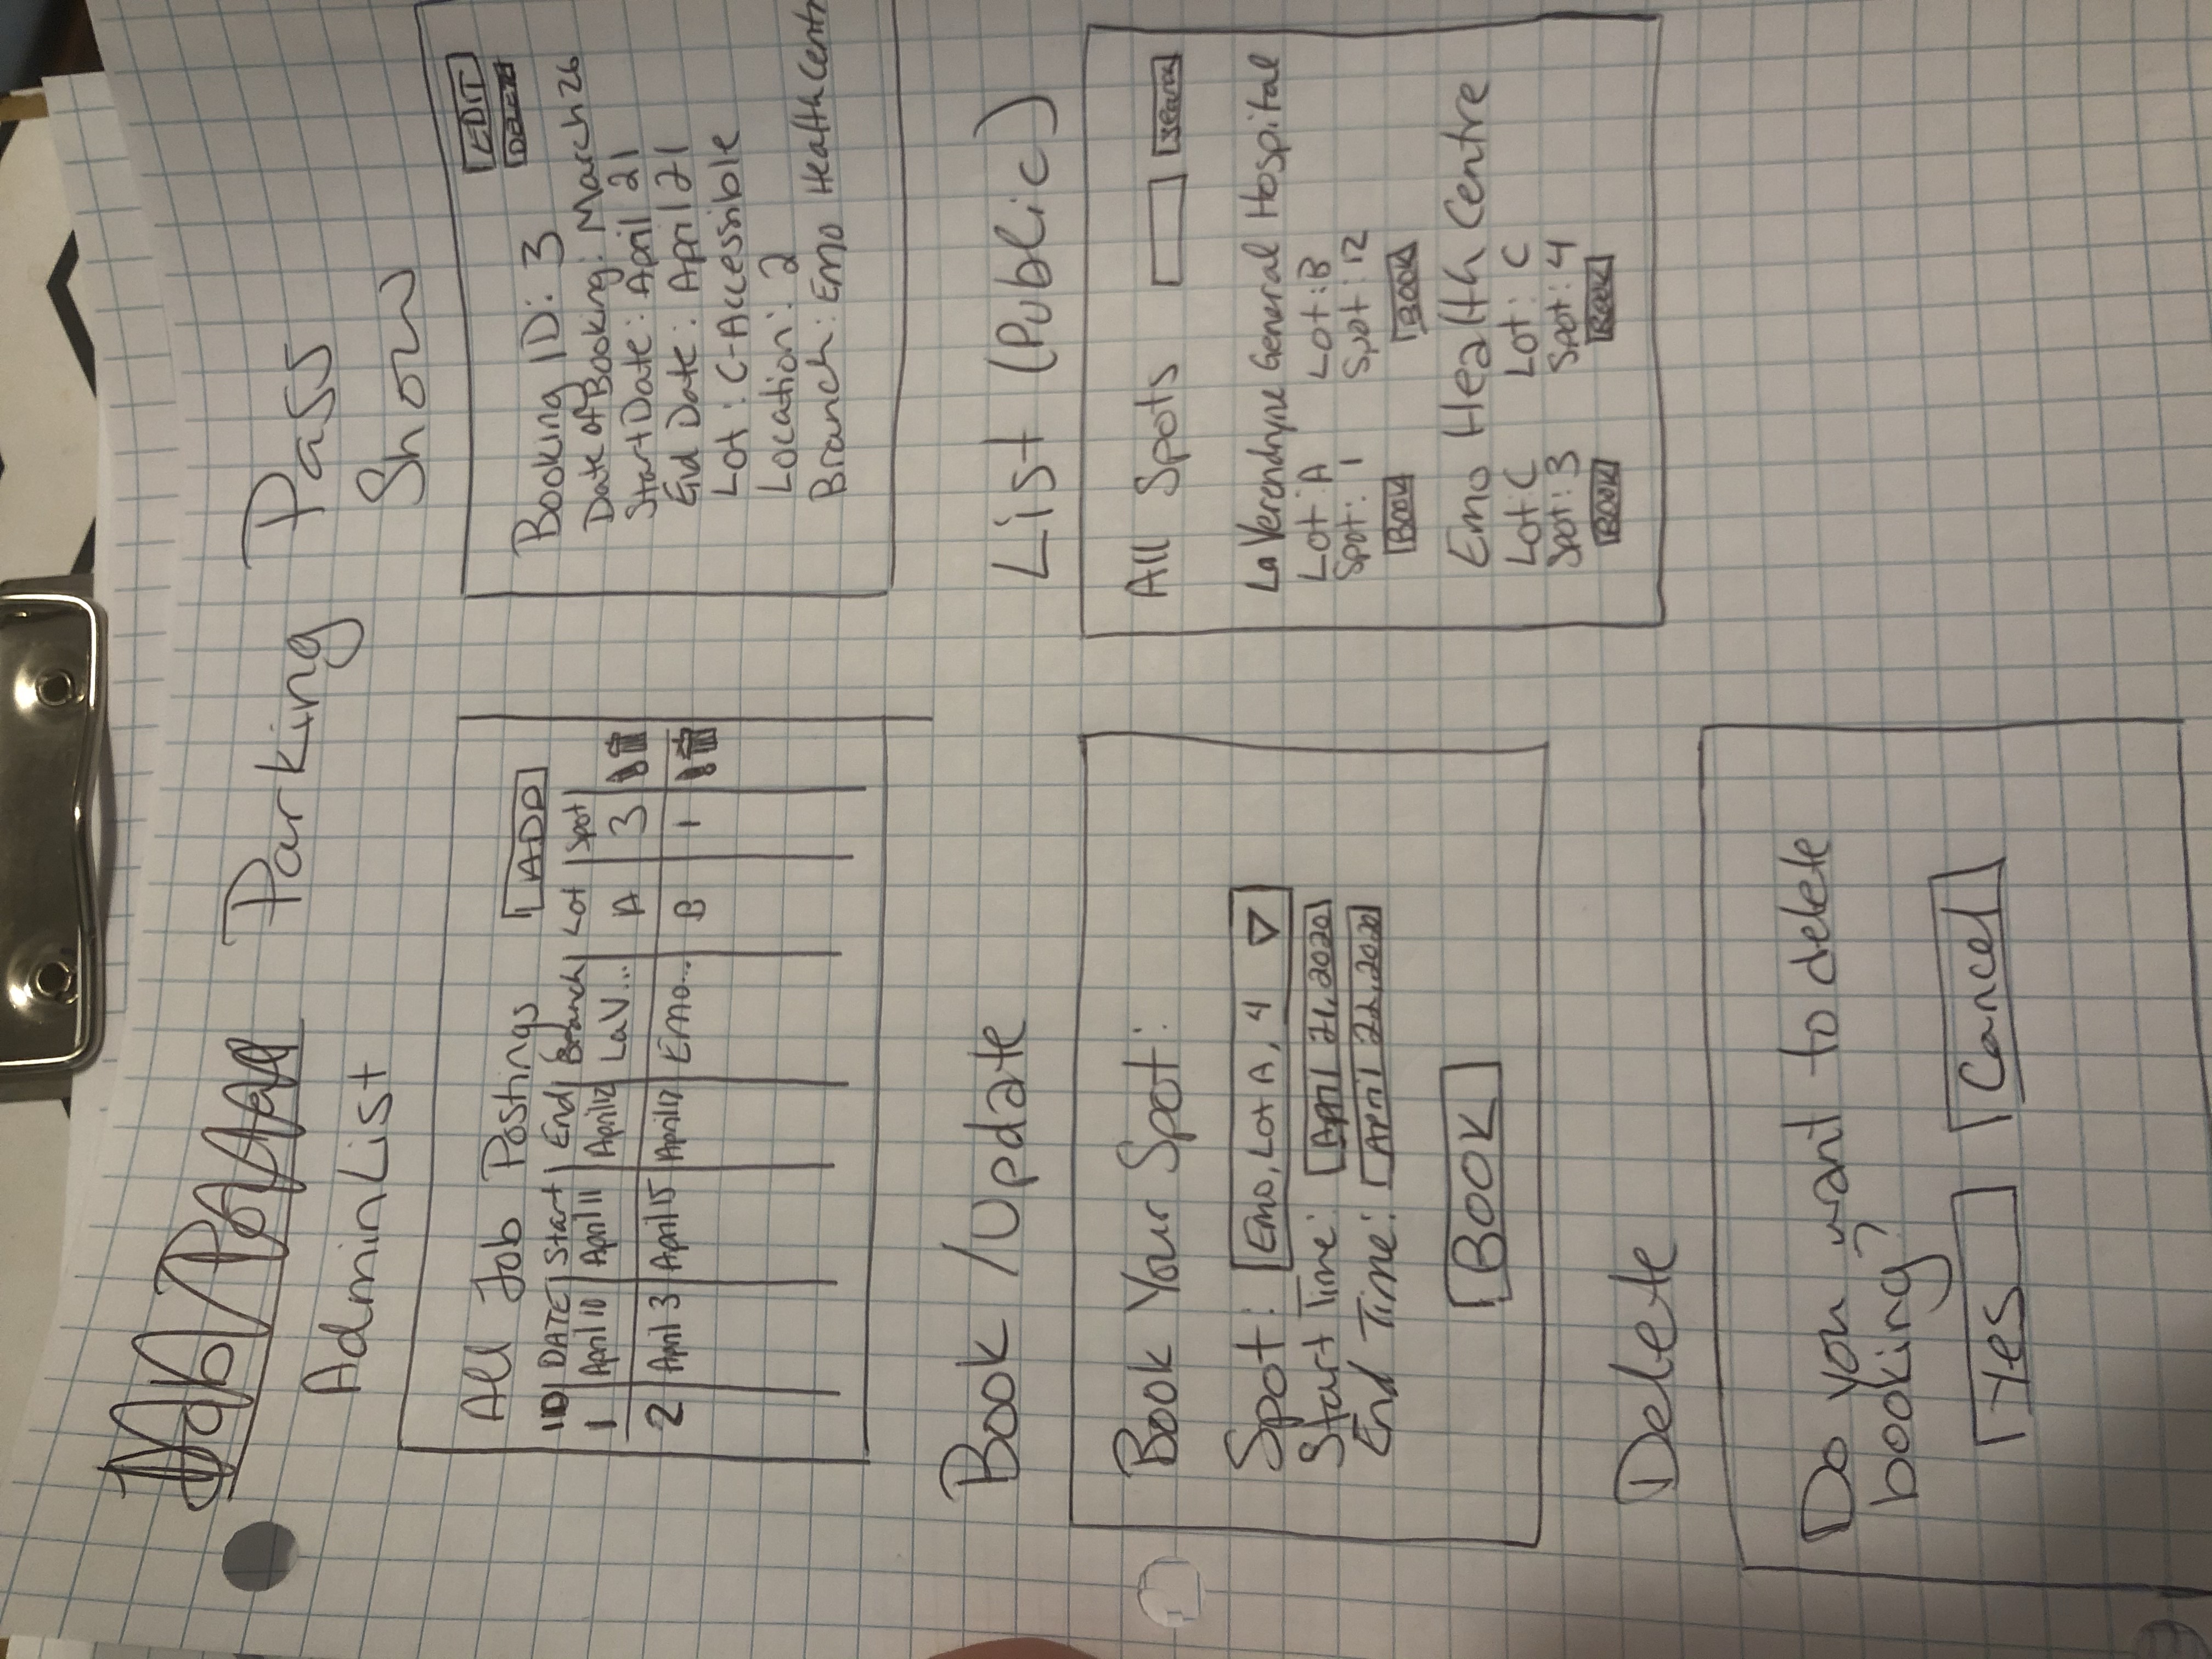 Job Portal
Parking Pass
AdminList
All Job Postings
ADD
ID DATE Start End Branch Lot Spot
1 April 10 April 11 April 12 LaV... A 3
2 April 3 April 15 April 17 Emo... B 1
Show
EDIT
DELETE
Booking ID: 3
Date of Booking: March 26
Start Date: April 21
End Date: April 21
Lot: C-Accessible
Location: 2
Branch: Emo Health Centr
Book/Update
Book Your Spot:
Spot: Emo, Lot A, 4
Start Time: April 21, 2020
End Time: April 22, 2020
BOOK
List (Public)
All Spots
Search
La Verendryne General Hospital
Lot: A Lot: B
Spot: 1 Spot: 12
BOOK BOOK
Emo Health Centre
Lot C Lot: C
Spot: 3 Spot: 4
BOOK BOOK
Delete
Do you want to delete
booking?
Yes Cancel